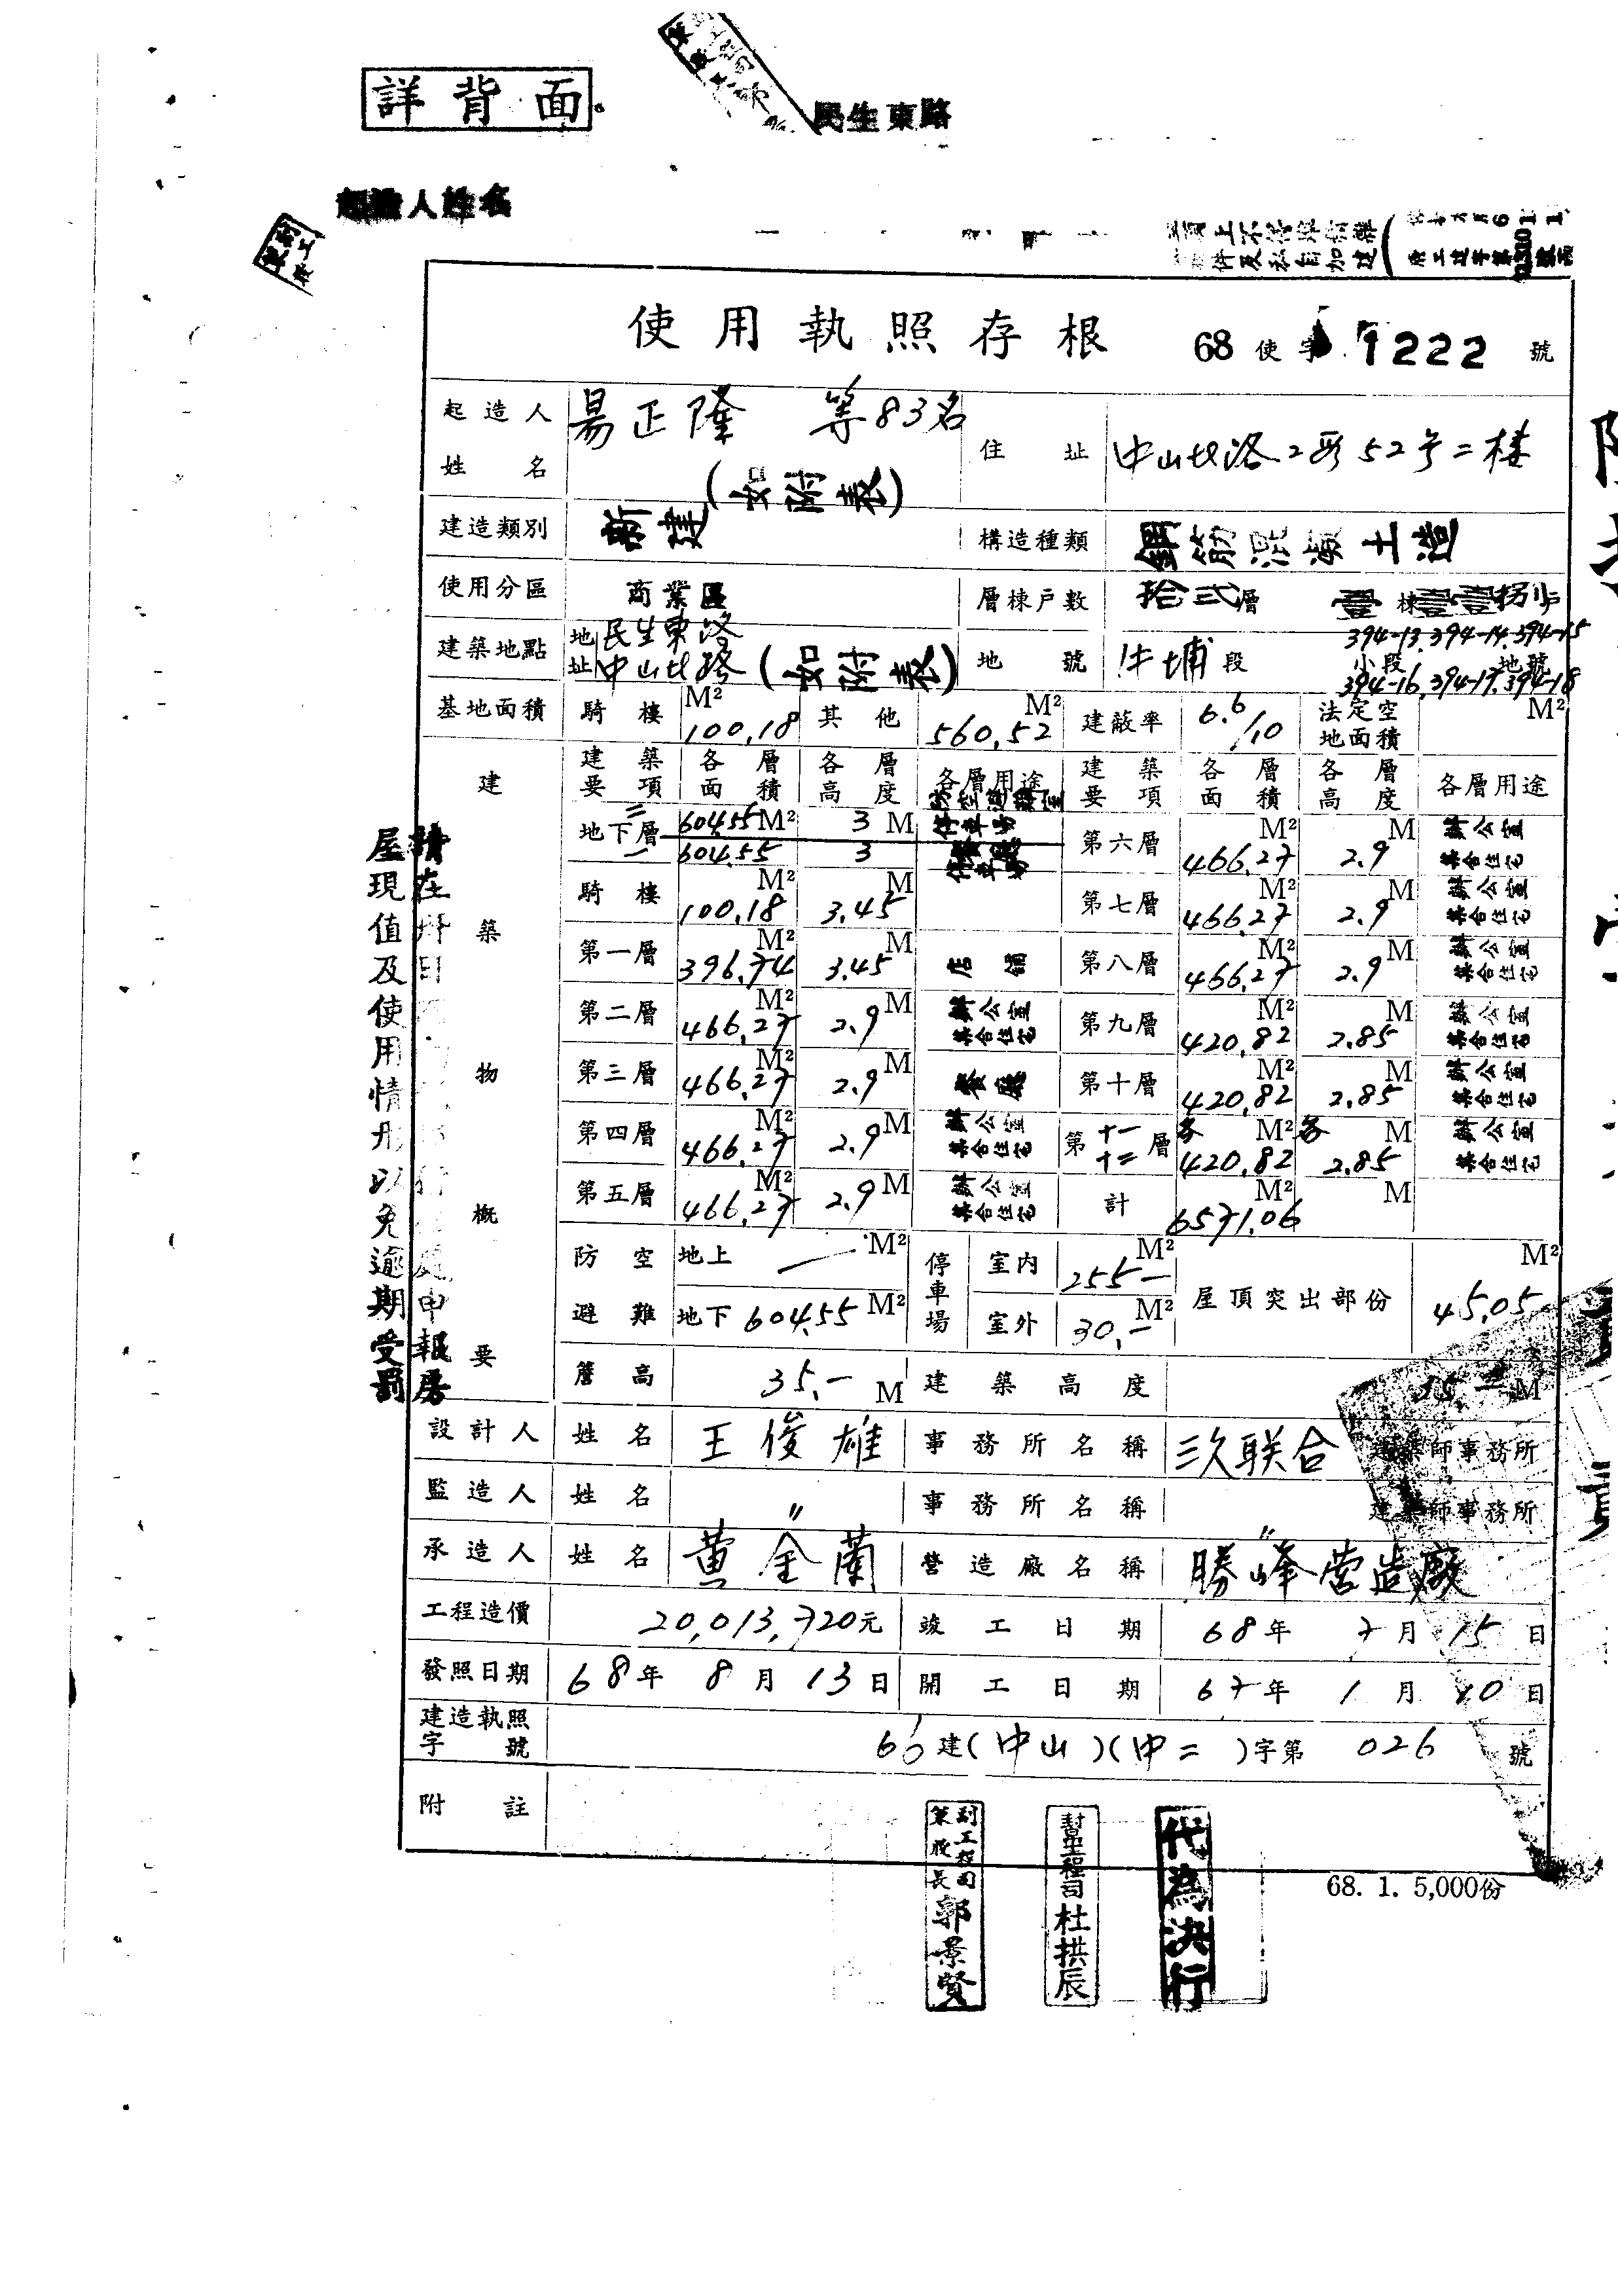 詳背面
民生東路
起造人姓名
使用執照存根 68 使字 1222 號
起造人姓名 易正隆 等83名 (如附表) 住址 中山北路2段52号二楼
建造類別 新建 構造種類 鋼筋混凝土造
使用分區 商業區 層棟戶數 拾弍層 壹棟 捌 戶
建築地點 地址 民生東路 中山北路 (如附表) 地號 牛埔段 小段 394-13.394-14.394-15 394-16.394-17.394-18 地號
基地面積 騎樓 100.18 M² 其他 560.52 M² 建蔽率 6.6/10 法定空地面積 M²
建築物概要
建築要項 各層面積 各層高度 各層用途 建築要項 各層面積 各層高度 各層用途
地下層 二 604.55 M² 3 M 防空避難室 停車場
一 604.55 3 餐廳 停車場
第六層 466.27 M² 2.9 M 辦公室 集合住宅
騎樓 100.18 M² 3.45 M 第七層 466.27 M² 2.9 M 辦公室 集合住宅
第一層 396.74 M² 3.45 M 店舖 第八層 466.27 M² 2.9 M 辦公室 集合住宅
第二層 466.27 M² 2.9 M 辦公室 集合住宅 第九層 420.82 M² 2.85 M 辦公室 集合住宅
第三層 466.27 M² 2.9 M 餐廳 第十層 420.82 M² 2.85 M 辦公室 集合住宅
第四層 466.27 M² 2.9 M 辦公室 集合住宅 第十一十二層 各 420.82 M² 各 2.85 M 辦公室 集合住宅
第五層 466.27 M² 2.9 M 辦公室 集合住宅 計 6571.06 M² M
防空避難 地上 — M² 地下 604.55 M² 停車場 室內 255- M² 室外 30.- M² 屋頂突出部份 45.05 M²
簷高 35.- M 建築高度 35.- M
設計人 姓名 王俊雄 事務所名稱 三久联合 建築師事務所
監造人 姓名 〃 事務所名稱 〃 建築師事務所
承造人 姓名 黄金蘭 營造廠名稱 勝峰营造廠
工程造價 20,013,720元 竣工日期 68年 7月 15日
發照日期 68年 8月 13日 開工日期 67年 1月 10日
建造執照字號 66 建(中山)(中二)字第 026 號
附註
68. 1. 5,000份
副工程司兼股長 郭景賢
幫工程司 杜拱辰
代為決行
屋現值及使用情形以免逾期受罰